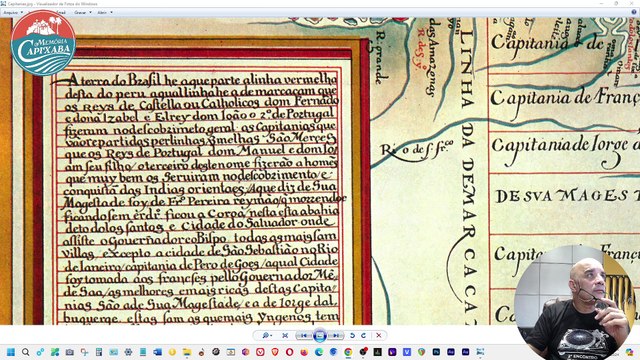 Capitanias.jpg - Visualizador de Fotos do Windows
Arquivo
Gravar
Abrir
MEMÓRIA
CAPIXABA
A terra do Brasil he aque parte alinha vermelha
desta do peru aqual linha he a demarcaçam que
os reys de Castella ou Catholicos dom Fernado
e dona Izabel e Elrey dom Ioão o 2º de Portugal
fizerum no descobzimeto geral as Capitanias que
vão repartidas per linhas vmelhas São Merces
que os Reys de Portugal dom Manuel e dom Ioã
am seu filho o terceiro deste nome fizerão a homẽs
que muy bem os seruiram no descobzimento e
conquista das Indias orientaes, A que diz de Sua
Magestade foy de Frco Pereira
ficando sem erdro ficou a Coroa, nesta esta abahia
deto dolos santos e Cidade do Saluador onde
assiste o Gouernador eo Bispo todas as mais sam
villas excepto a cidade de São Sebastião no Rio
de Ianeiro capitania de Pero de Goes, aqual Cidade
foy tomada aos franceses pello Gouernador Mẽ
de Saa, as melhores e mais ricas destas Capita
nias São ade Sua Magestade e a de Iorge dal
buquerque estas sam as que mais Yngenos tem
R. grande
das Amazonas
LINHA DA DEMARCACA
Capitania de
Capitania de Franç
Capitania de Iorge a
DE SVA MAGEST
Capitania de Franç
Capitania